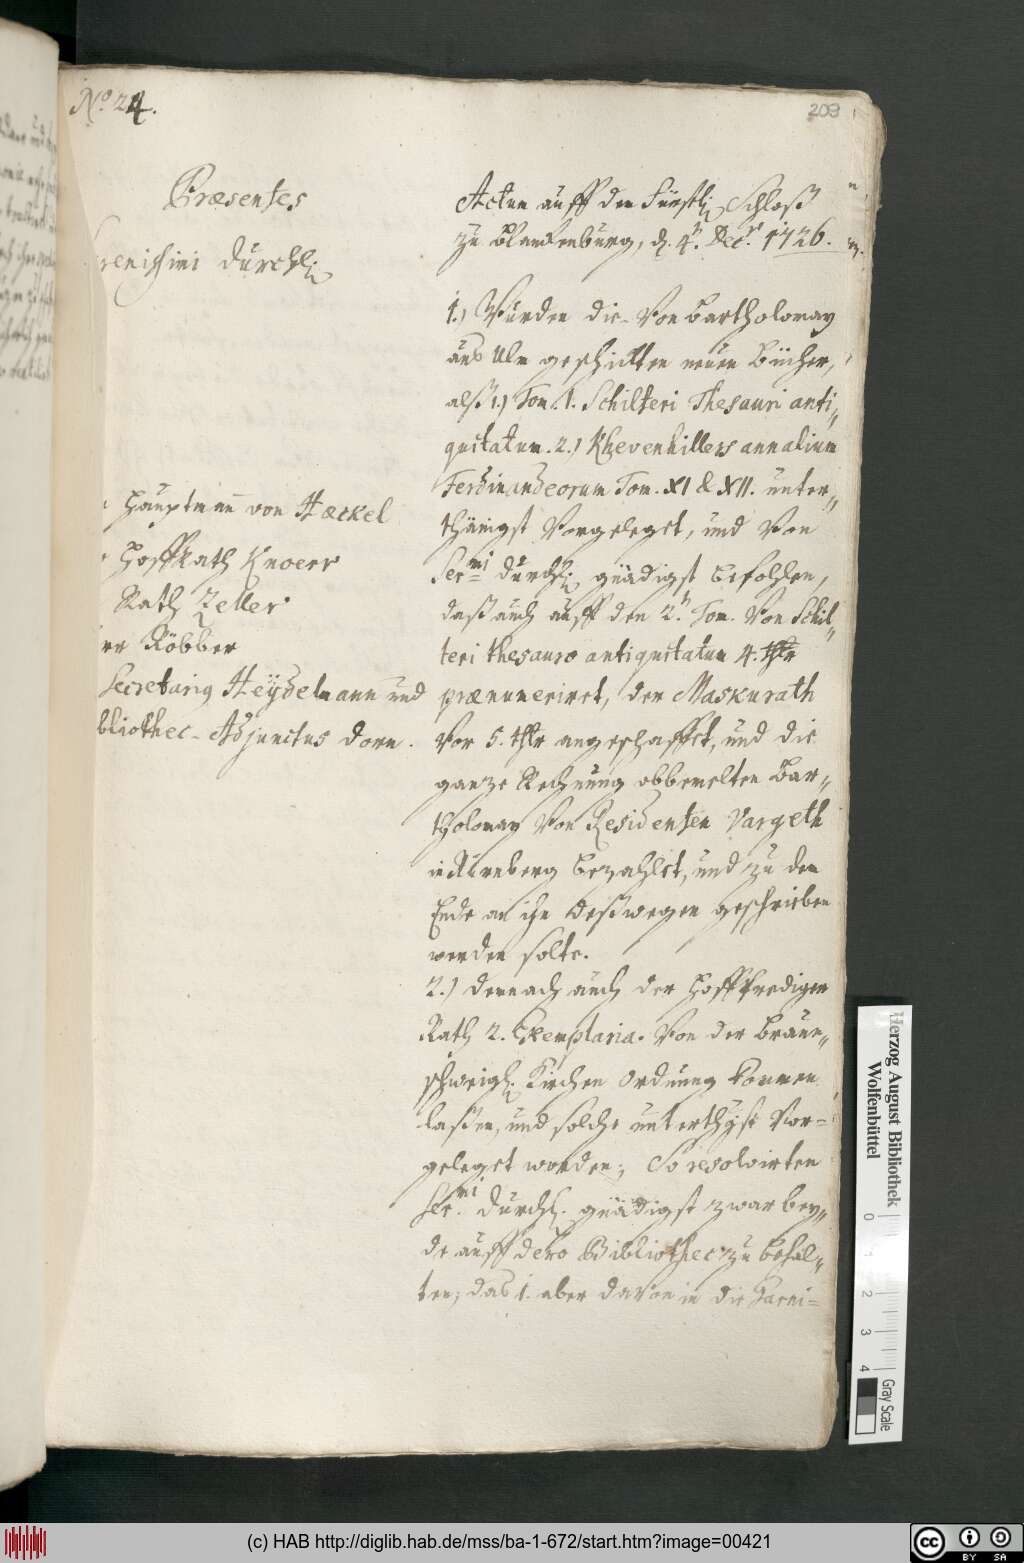 No 24.
203
Præsentes
renissimi Durchl.
Hauptmann von Hæckel
HoffRath Knoerr
Rath Zeller
rr Röbber
Secretarius Heÿdelmann und
bliothec-Adjunctus Dorn.
Actum auff dem Fürstl. Schloß
zu Blanckenburg, d. 4n. Decr. 1726.
1.) Wurden die von Bartholomæy
aus Ulm geschickten neuen Bücher,
alß 1.) Tom. I. Schilteri Thesauri anti-
quitatum. 2.) Khevenhillers annalium
Ferdinandeorum Tom. XI & XII. unter-
thänigst vorgeleget, und von
Sermi Durchl. gnädigst befohlen,
daß auch auff den 2n. Tom. von Schil-
teri thesauro antiquitatum 4. thlr
prænumeriret, der Maskurath
vor 5. thlr angeschaffet, und die
ganze Rechnung obbemelten Bar-
tholomæy von Residenten Vargeth
in Nürnberg bezahlet, und zu dem
Ende an ihn deßwegen geschrieben
werden solte.
2.) Demnach auch der Hoffprediger
Rath 2. Exemplaria von der Braun-
schweigl. Kirchen Ordnung kommen
laßen, und solche unterthgst vor-
geleget worden; So resolvirten
Sermi Durchl. gnädigst zwar bey-
de auff dero Bibliothec zu behal-
ten; das 1. aber davon in die Garni-
Herzog August Bibliothek
Wolfenbüttel
0 1 2 3 4
Gray Scale
(c) HAB http://diglib.hab.de/mss/ba-1-672/start.htm?image=00421
cc BY SA